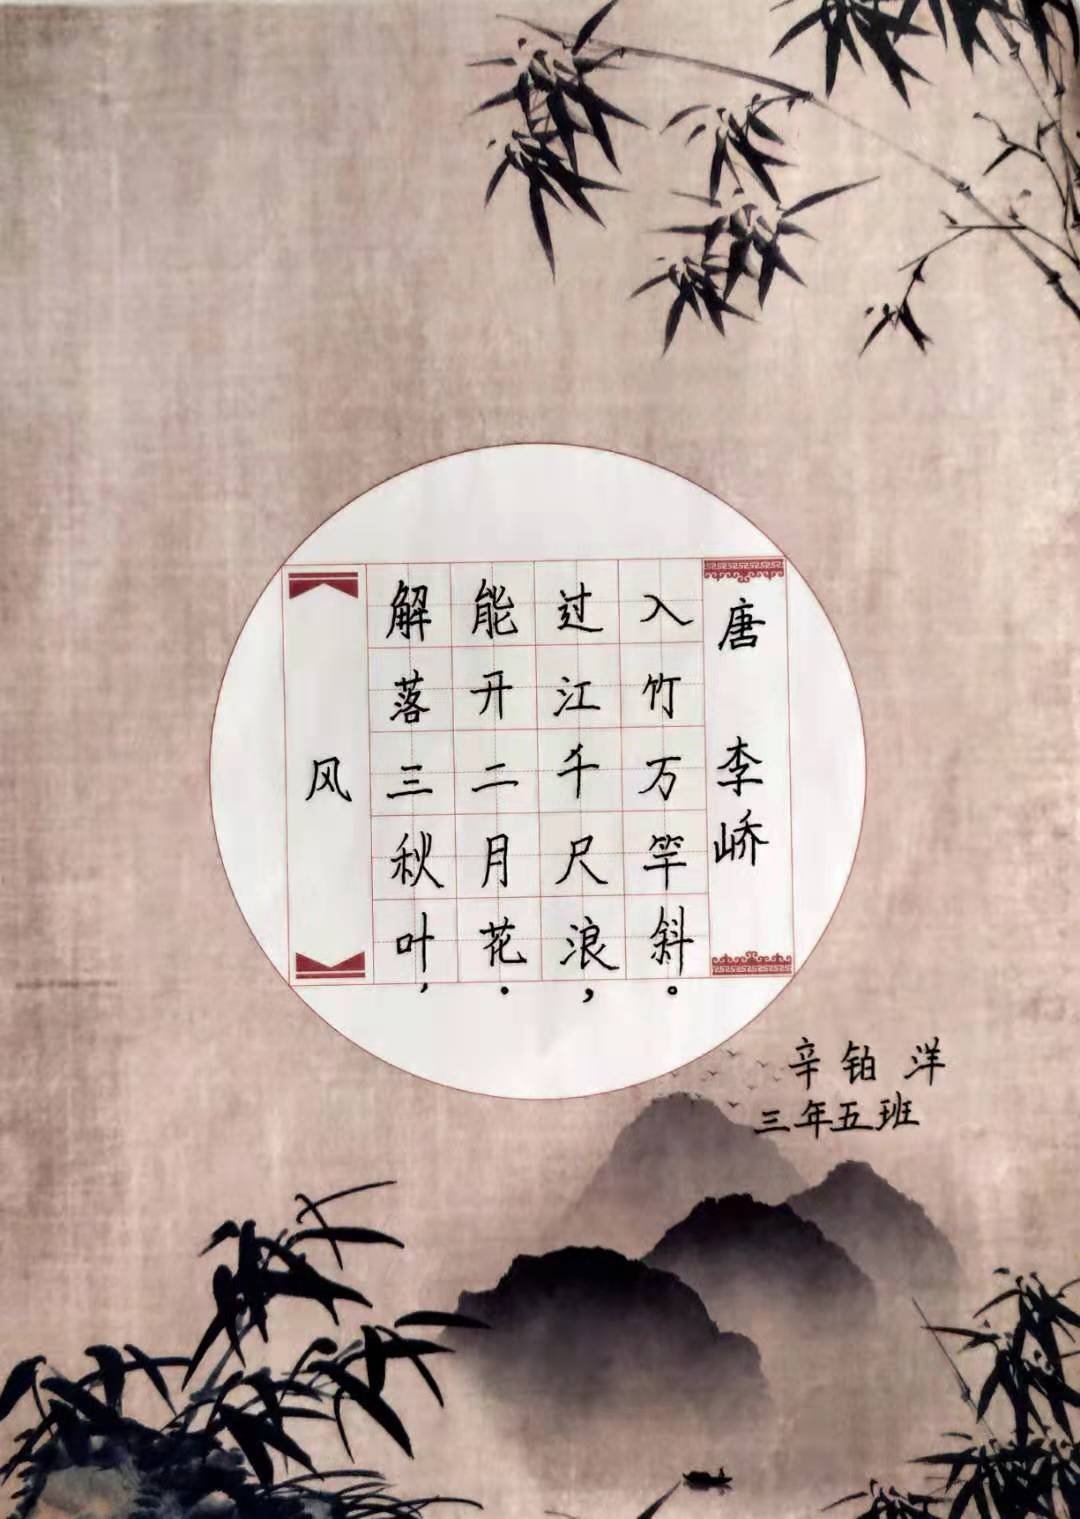 风
解落三秋叶，
能开二月花.
过江千尺浪，
入竹万竿斜。
唐 李峤
辛铂洋
三年五班